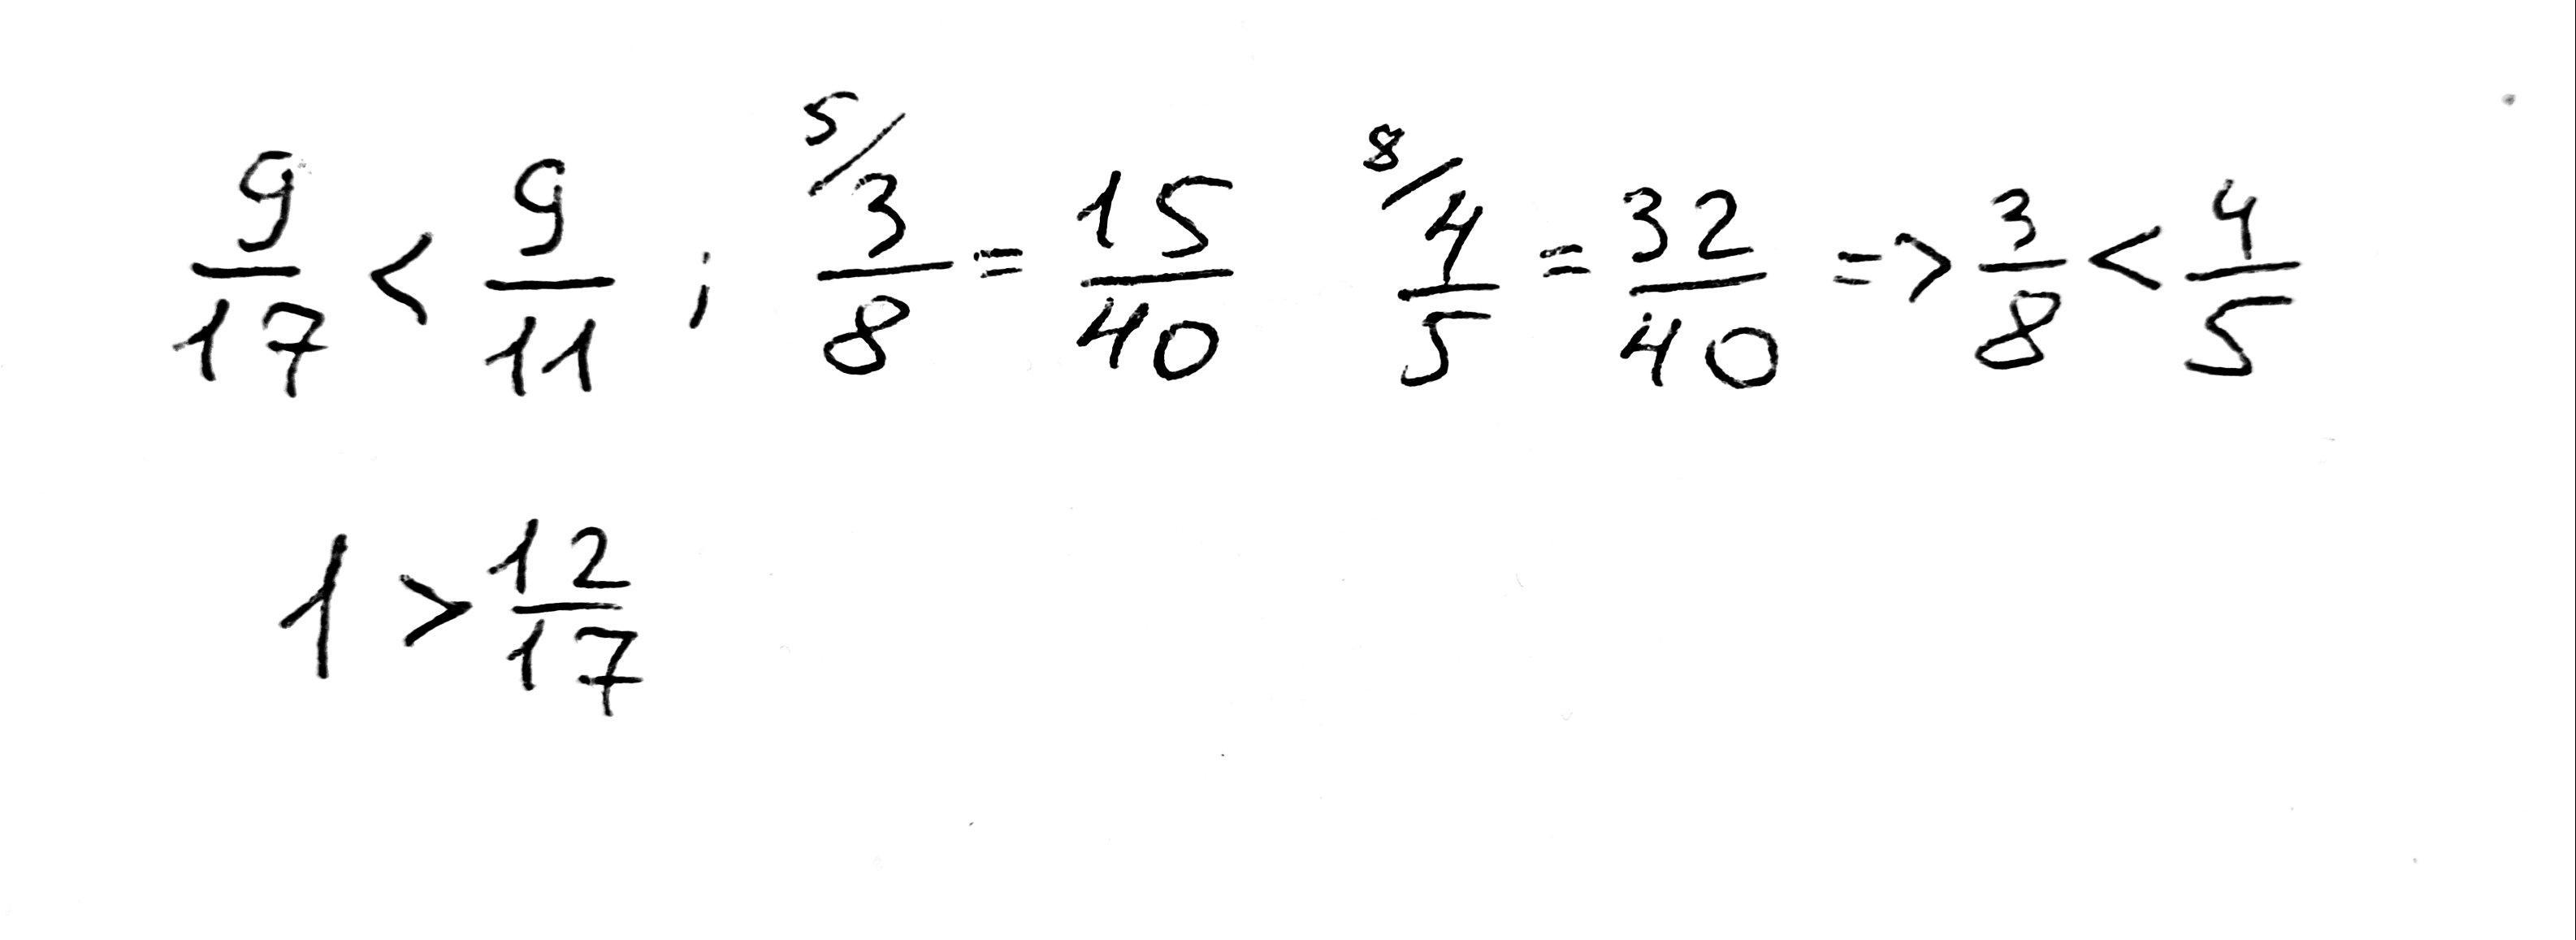 9/17 < 9/11 ; 5/ 3/8 = 15/40 8/ 4/5 = 32/40 => 3/8 < 4/5
1 > 12/17